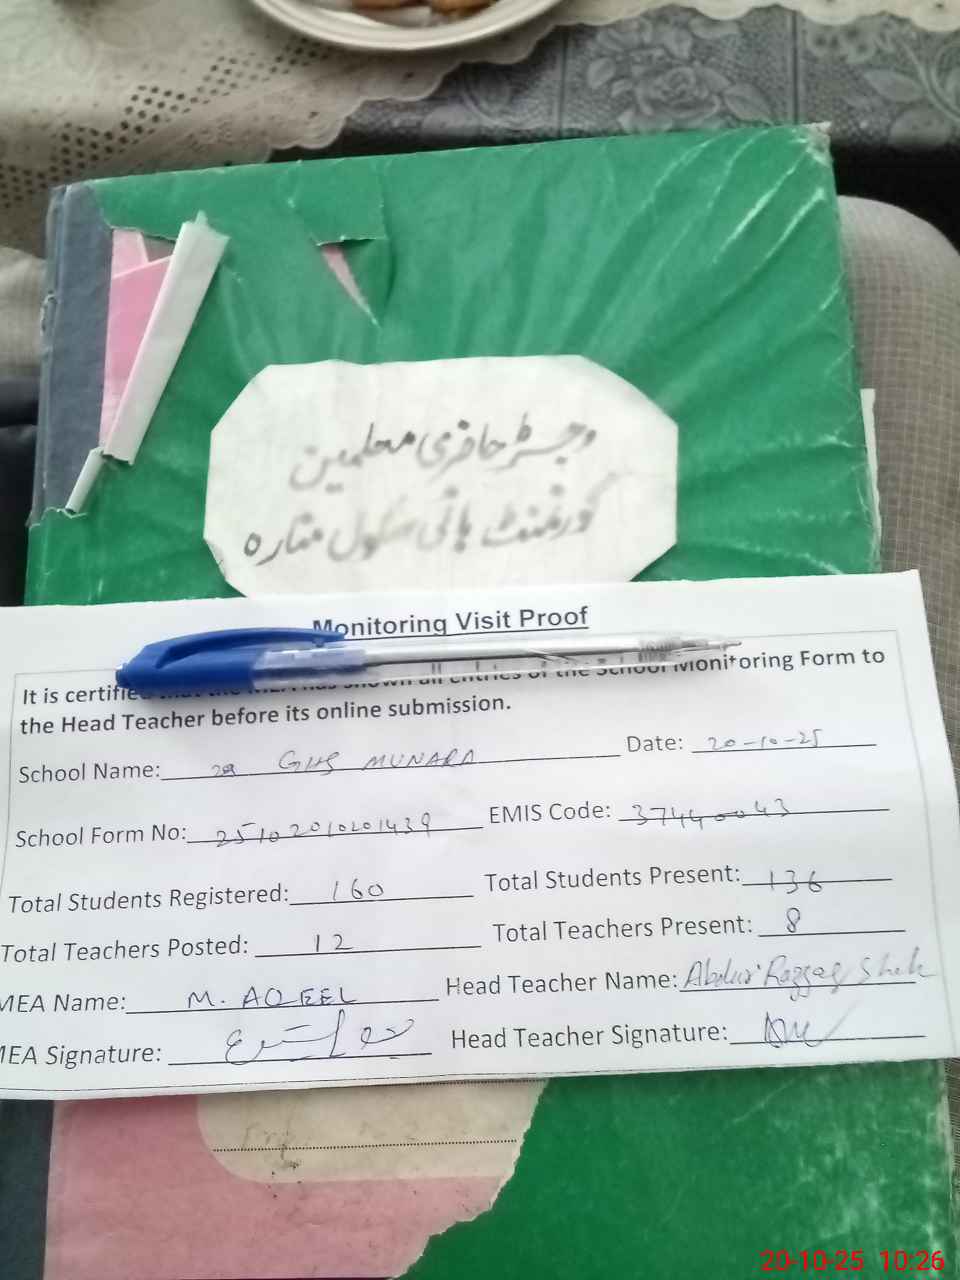 رجسٹر حاضری معلمین
گورنمنٹ ہائی سکول منارہ
Monitoring Visit Proof
It is certified that the MEA has shown all entries of the School Monitoring Form to
the Head Teacher before its online submission.
School Name: GHS MUNARA Date: 20-10-25
School Form No: 25102010201439 EMIS Code: 37440043
Total Students Registered: 160 Total Students Present: 136
Total Teachers Posted: 12 Total Teachers Present: 8
MEA Name: M. AQEEL Head Teacher Name: Abdur Razzaq
MEA Signature: Head Teacher Signature:
20-10-25 10:26